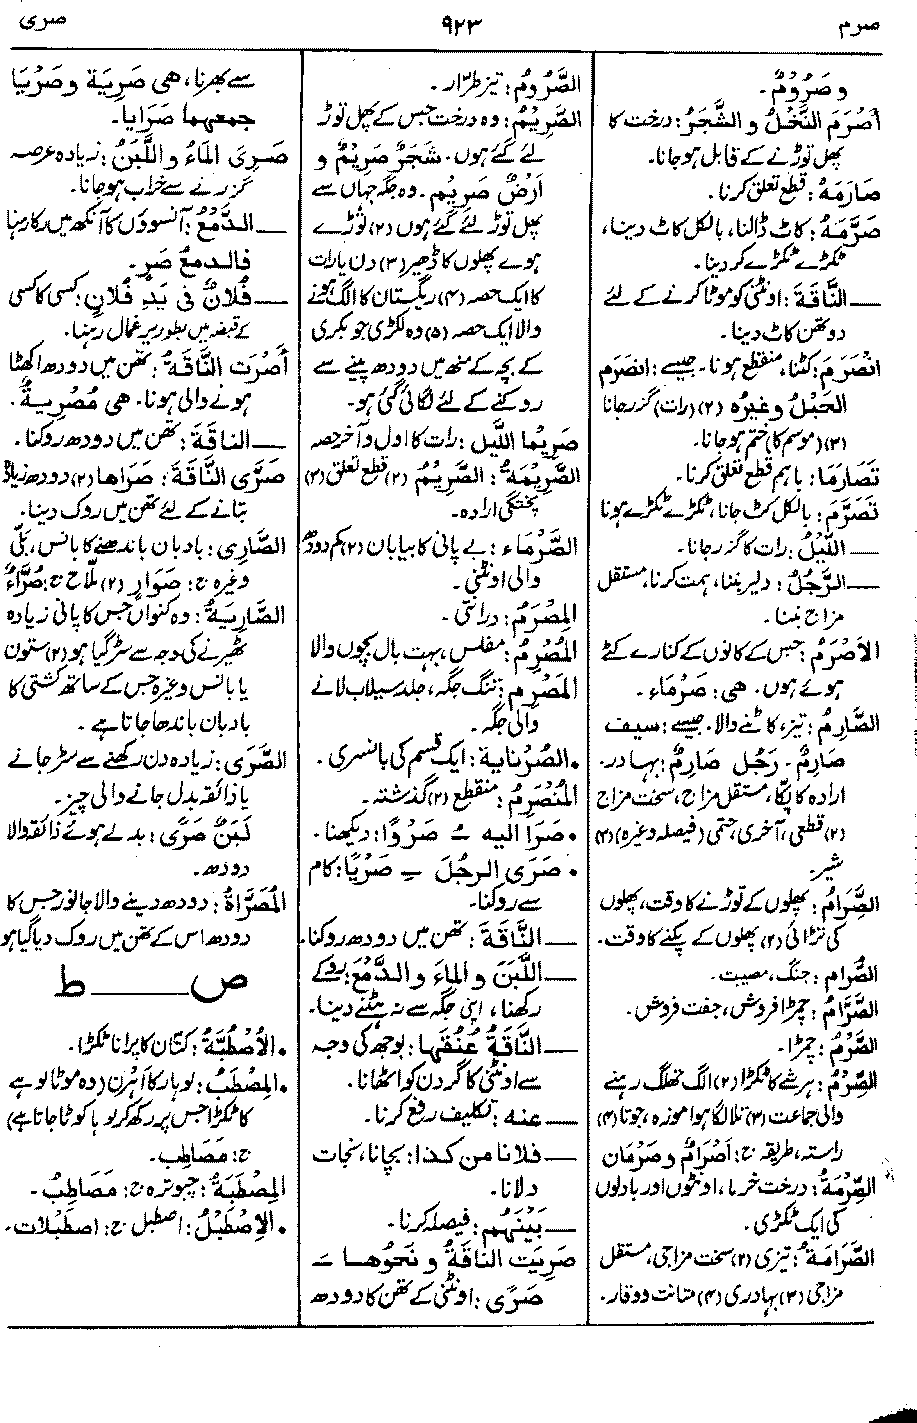 صرم
۹۲۳
صری
و صَرُومٌ۔
أصْرَمَ النَّخْلُ و الشَّجَرُ: درخت کا
پھل توڑنے کے قابل ہوجانا۔
صَارَمَهُ: قطع تعلق کرنا۔
صَرَّمَهُ: کاٹ ڈالنا، بالکل کاٹ دینا،
ٹکڑے ٹکڑے کر دینا۔
— النَّاقَةَ: اونٹنی کو موٹا کرنے کے لئے
دو تھن کاٹ دینا۔
انْصَرَمَ: کٹنا، منقطع ہونا۔ جیسے: انصَرَمَ
الحَبْلُ وغَيرُه (۲) (رات) گزر جانا
(۳) (موسم کا) ختم ہوجانا۔
تَصَارَمَا: باہم قطع تعلق کرنا۔
تَصَرَّمَ: بالکل کٹ جانا، ٹکڑے ٹکڑے ہونا
— اللَّيْلُ: رات کا گزر جانا۔
— الرَّجُلُ: دلیر بننا، ہمت کرنا، مستقل
مزاج بننا۔
الأصْرَمُ: جس کے کانوں کے کنارے کٹے
ہوے ہوں۔ ھی: صَرْمَاء۔
الصَّارِمُ: تیز، کاٹنے والا۔ جیسے: سيف
صَارِمٌ۔ رَجُل صَارِمٌ: بہادر۔
ارادہ کا پکّا، مستقل مزاج، سخت مزاج
(۲) قطعی، آخری، حتمی (فیصلہ وغیرہ) (۳)
شیر۔
الصَّرَامُ: پھلوں کے توڑنے کا وقت، پھلوں
کی تڑائی (۲) پھلوں کے پکنے کا وقت۔
الصُّرام: جنگ، مصیبت۔
الصَّرَّامُ: چمڑا فروش، جفت فروش۔
الصَّرْمُ: چمڑا۔
الصِّرْمُ: ہر شے کا ٹکڑا (۲) الگ تھلگ رہنے
والی جماعت (۳) تلا لگا ہوا موزہ، جوتا (۴)
راستہ، طریقہ ج: أصْرَامٌ وصُرْمَان
الصِّرْمَةُ: درخت خرما، اونٹوں اور بادلوں
کی ایک ٹکڑی۔
الصَّرَامَة: تیزی (۲) سخت مزاجی، مستقل
مزاجی (۳) بہادری (۴) متانت و وقار۔
الصَّرُومُ: تیز طرّار۔
الصَّرِيْمُ: وہ درخت جس کے پھل توڑ
لئے گئے ہوں۔ شَجَرٌ صَرِيمٌ و
أرْضٌ صَرِيم۔ وہ جگہ جہاں سے
پھل توڑ لئے گئے ہوں (۲) توڑے
ہوے پھلوں کا ڈھیر (۳) دن یا رات
کا ایک حصہ (۴) ریگستان کا الگ ہونے
والا ایک حصہ (۵) وہ لکڑی جو بکری
کے بچہ کے منھ میں دودھ پینے سے
روکنے کے لئے لگائی گئی ہو۔
صَرِيمَا اللَّيل: رات کا اول و آخر حصہ
الصَّرِيْمَةُ: الصَّرِيْمُ (۲) قطع تعلق (۳)
پختگی ارادہ۔
الصَّرْمَاء: بے پانی کا بیابان (۲) کم دودھ
والی اونٹنی۔
المِصْرَمُ: درانتی۔
المُصْرِمُ: مفلس، بہت بال بچوں والا
المَصْرِم: تنگ جگہ، جلد سیلاب لانے
والی جگہ۔
• الصُّرْنَاية: ایک قسم کی بانسری۔
المُنْصَرِمُ: منقطع (۲) گذشتہ۔
• صَرَا اليه ـُ صَرْوًا: دیکھنا۔
• صَرَى الرجُلَ ـِ صَرْيًا: کام
سے روکنا۔
— النَّاقَةَ: تھن میں دودھ روکنا۔
— اللَّبَنَ و الماءَ و الدَّمْعَ: روکے
رکھنا، اپنی جگہ سے نہ ہٹنے دینا۔
— النَّاقَةُ عُنُقَها: بوجھ کی وجہ
سے اونٹنی کا گردن کو اٹھانا۔
— عنه: تکلیف رفع کرنا۔
— فلانا من کذا: بچانا، نجات
دلانا۔
— بَيْنَهُم: فیصلہ کرنا۔
صَرِيَت الناقَةُ و نَحْوُها ـَ
صَرًى: اونٹنی کے تھن کا دودھ
سے بھرنا، ھی صَرِيَة وصَرْيَا
جمعهما صَرَايا۔
صَرِىَ المَاءُ واللَّبَنُ: زیادہ عرصہ
گزرنے سے خراب ہوجانا۔
— الدَّمْعُ: آنسوؤں کا آنکھ میں رکا رہنا
فالدمعُ صَرٍ۔
— فُلَانٌ فى يَدِ فُلَانٍ: کسی کا کسی
کے قبضہ میں بطور یرغمال رہنا۔
أصْرَت النَّاقَةُ: تھن میں دودھ اکھٹا
ہونے والی ہونا۔ ھی مُصْرِيةٌ۔
— الناقَةَ: تھن میں دودھ روکنا۔
صَرَّى النَّاقَةَ: صَرَاها (۲) دودھ زیادہ
بنانے کے لئے تھن میں روک دینا۔
الصَّارِى: بادبان باندھنے کا بانس، بلّی
وغیرہ ج: صَوَارٍ (۲) ملّاح ج: صُرَّاءٌ
الصَّارِيةُ: وہ کنواں جس کا پانی زیادہ
ٹھیرنے کی وجہ سے سڑ گیا ہو (۲) ستون
یا بانس وغیرہ جس کے ساتھ کشتی کا
بادبان باندھا جاتا ہے۔
الصَّرَى: زیادہ دن رکھنے سے سڑ جانے
یا ذائقہ بدل جانے والی چیز۔
لَبَنٌ صَرًى: بدلے ہوئے ذائقہ والا
دودھ۔
المُصَرَّاةُ: دودھ دینے والا جانور جس کا
دودھ اس کے تھن میں روک دیا گیا ہو
ص — ط
• الأصْطُبَّةُ: کتّان کا پرانا ٹکڑا۔
• المِصْطَبُ: لوہار کا اَہرَن (وہ موٹا لوہے
کا ٹکڑا جس پر رکھ کر لوہا کوٹا جاتا ہے)
ج: مَصَاطِب۔
المِصْطَبَةُ: چبوترہ ج: مَصَاطِبُ۔
• الإصْطَبْلُ: اصطبل ج: اصطبلات۔